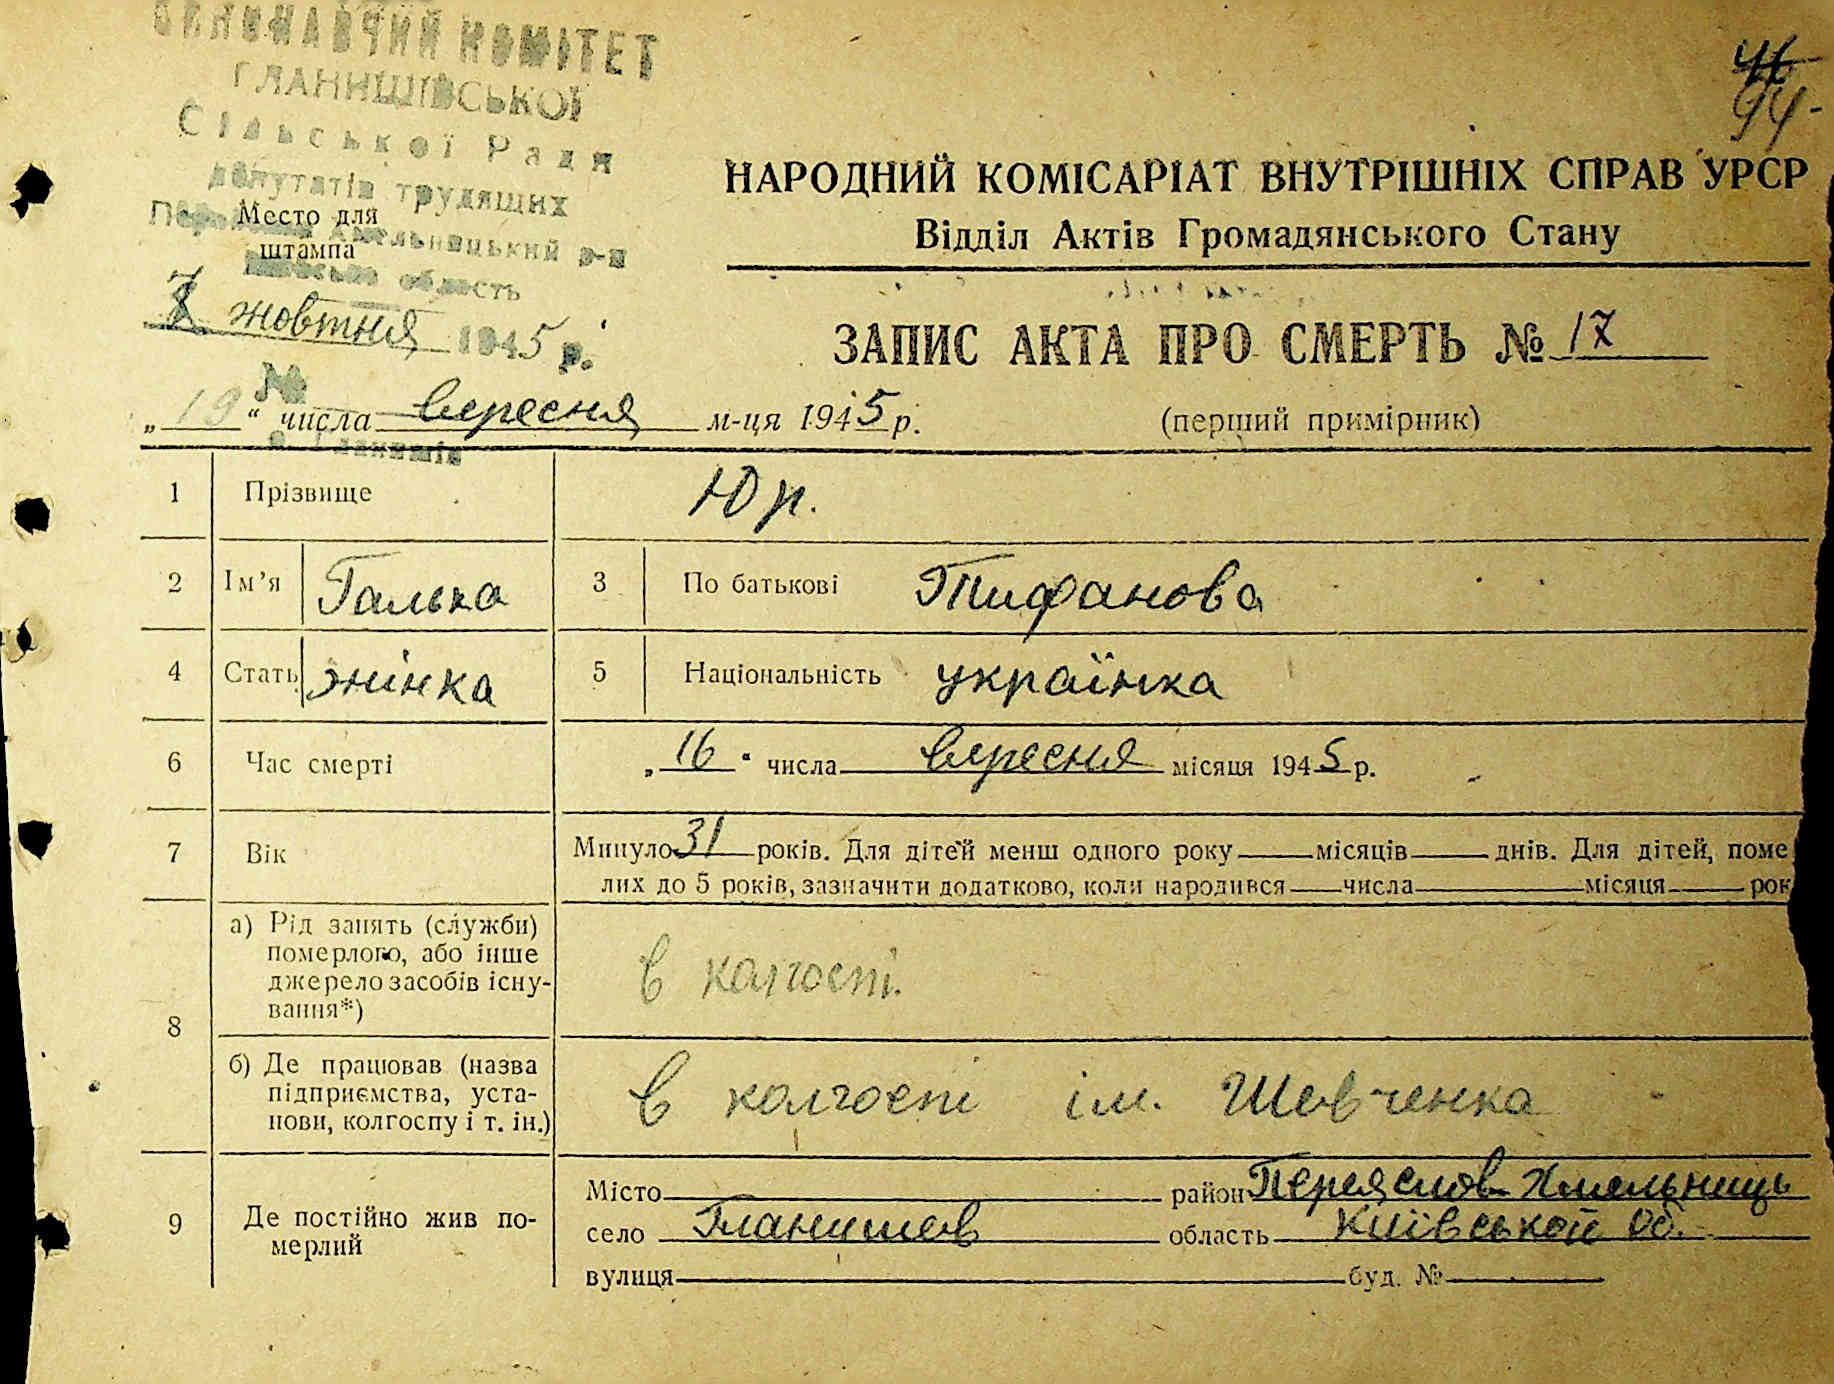 ВИКОНАВЧИЙ КОМІТЕТ
ГЛАНИШІВСЬКОЇ
Сільської Ради
депутатів трудящих
Хмельницький р-н
область
Место для
штампа
7 жовтня 1945 р.
№
44
94
НАРОДНИЙ КОМІСАРІАТ ВНУТРІШНІХ СПРАВ УРСР
Відділ Актів Громадянського Стану
ЗАПИС АКТА ПРО СМЕРТЬ № 17
„19“ числа вересня м-ця 1945 р. (перший примірник)
1 Прізвище Юр.
2 Ім'я Галька 3 По батькові Тифанова
4 Стать жінка 5 Національність українка
6 Час смерті „16“ числа вересня місяця 1945 р.
7 Вік Минуло 31 років. Для дітей менш одного року місяців днів. Для дітей, поме
лих до 5 років, зазначити додатково, коли народився числа місяця рок
8 а) Рід занять (служби)
померлого, або інше
джерело засобів існу-
вання*)
в колгоспі.
б) Де працював (назва
підприємства, уста-
нови, колгоспу і т. ін.)
в колгоспі ім. Шевченка
9 Де постійно жив по-
мерлий
Місто район Переяслов Хмельниць
село Гланишев область Київськой об.
вулиця буд. №